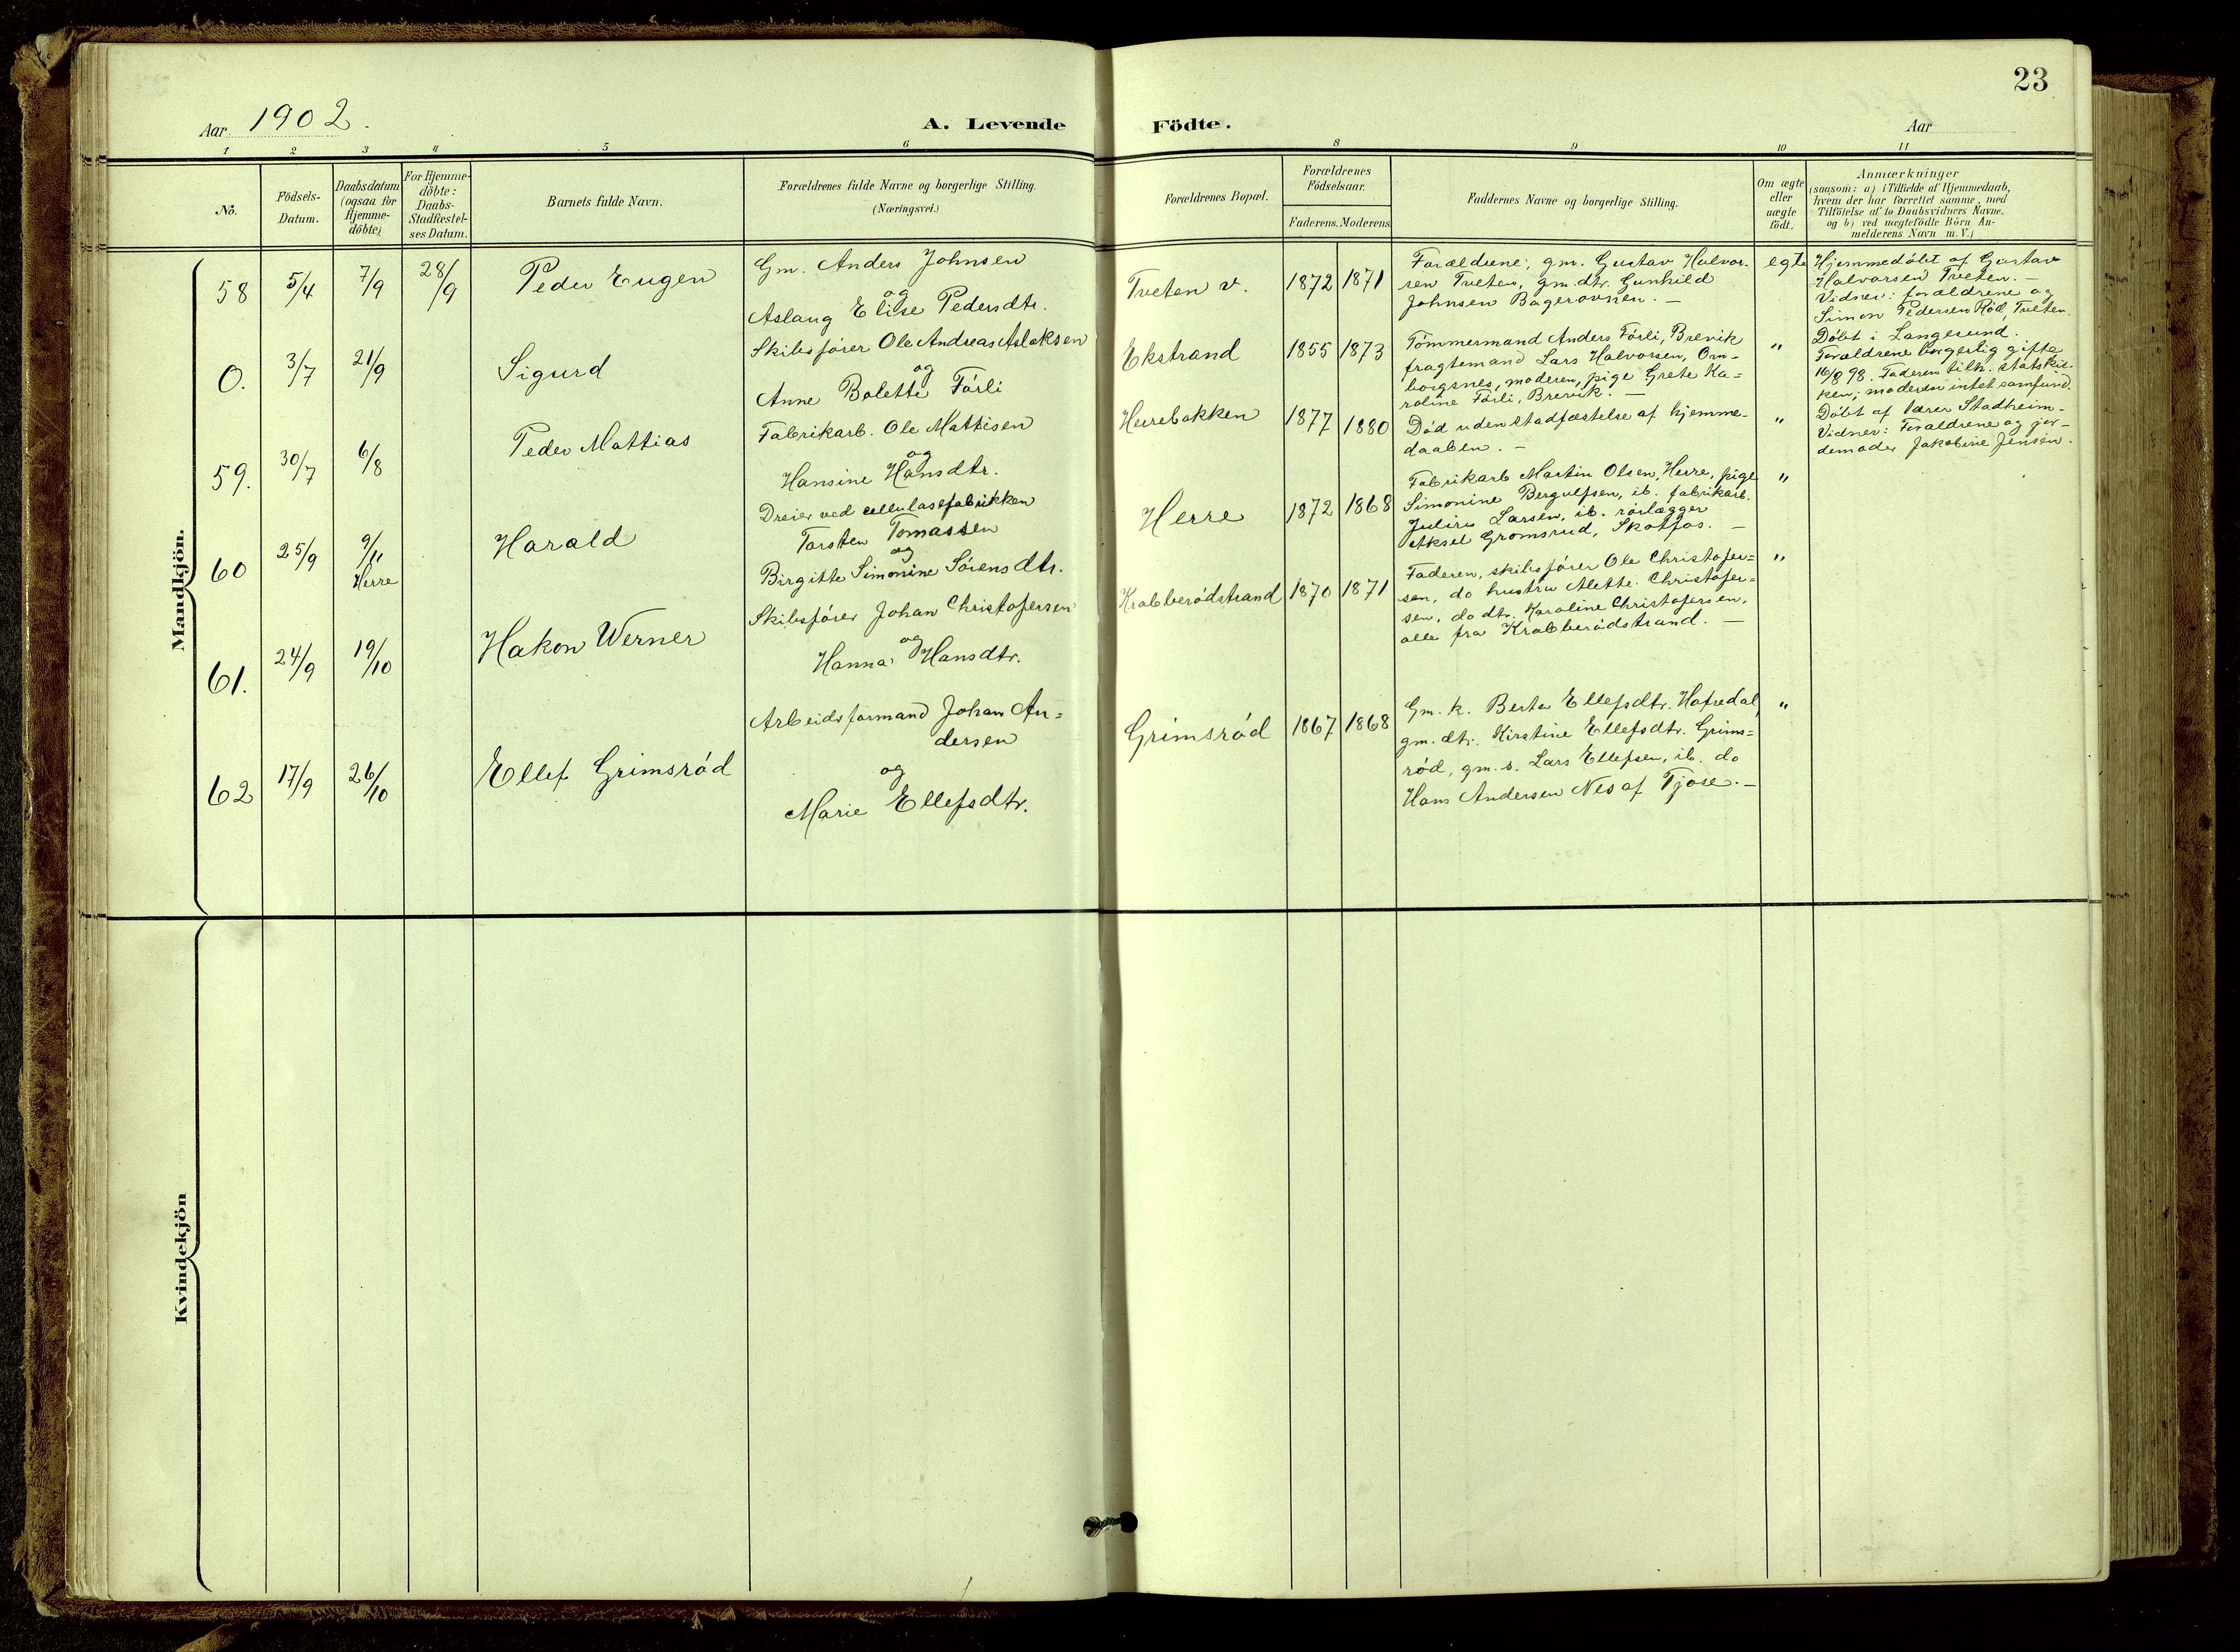 23
Aar 1902.
A. Levende Födte.
Aar
1 2 3 4 5 6 8 9 10 11
No.
Födsels-
Datum.
Daabsdatum
(ogsaa for
Hjemme-
döbte)
For Hjemme-
döbte:
Daabs-
Stadfæstel-
ses Datum.
Barnets fulde Navn.
Forældrenes fulde Navne og borgerlige Stilling.
(Næringsvei.)
Forældrenes Bopæl.
Forældrenes
Födselsaar.
Faderens. Moderens.
Faddernes Navne og borgerlige Stilling.
Om ægte
eller
uægte
födt.
Anmærkninger
(saasom: a) i Tilfælde af Hjemmedaab,
hvem der har forrettet samme, med
Tilföielse af to Daabsvidners Navne,
og b) ved uægtefödte Börn An-
melderens Navn m. V.)
Mandkjön.
58
5/4
7/9
28/9
Peder Eugen
Gm. Anders Johnsen
og
Aslaug Elise Pedersdtr.
Tveten v.
1872
1871
Forældrene, gm. Gustav Halvor-
sen Tveten, gm. dtr. Gunhild
Johnsen Bagerovnen. —
egte
Hjemmedöbt af Gustav
Halvorsen Tveten. —
Vidner: forældrene og
Simon Pedersen Röd, Tveten.
0.
3/7
21/9
Sigurd
Skibsförer Ole Andreas Aslaksen
og
Anne Bolette Förli
Ekstrand
1855
1873
Tömmermand Anders Förli, Brevik
fragtemand Lars Halvorsen, Om-
borgsnes, moderen, pige Grete Ka=
roline Förli, Brevik. —
"
Döbt i Langesund.
Forældrene borgerlig gifte
16/8 98. Faderen tilh. statskir-
ken; moderen intet samfund.
59.
30/7
6/8
Peder Mattias
Fabrikarb. Ole Mattisen
og
Hansine Hansdtr.
Herrebakken
1877
1880
Död uden stadfæstelse af hjemme-
daaben. —
"
Döbt af lærer Stadheim-
Vidner: Forældrene og jor-
demoder Jakobine Jensen.
60
25/9
9/11
Herre
Harald
Dreier ved cellulosefabrikken
Torsten Tomassen
og
Birgitte Simonine Sörensdtr.
Herre
1872
1868
Fabrikarb Martin Olsen, Herre, pige
Simonine Bergulfsen, ib. fabrikarb.
Julius Larsen, ib. rörlægger
Aksel Gromsrud, Skotfos. —
"
61.
24/9
19/10
Hakon Werner
Skibsförer Johan Christofersen
og
Hanna Hansdtr.
Krabberödstrand
1870
1871
Faderen, skibsförer Ole Christofer=
sen, do hustru Alette Christofer=
sen, do dtr. Karoline Christofersen,
alle fra Krabberödstrand. —
"
62
17/9
26/10
Ellef Grimsröd
Arbeidsformand Johan An=
dersen
og
Marie Ellefsdtr.
Grimsröd
1867
1868
Gm. k. Berta Ellefsdtr. Hafredal,
gm. dtr. Kirstine Ellefsdtr. Grims=
röd, gm. s. Lars Ellefsen, ib. do
Hans Andersen Nes af Tjöse. —
"
Kvindekjön